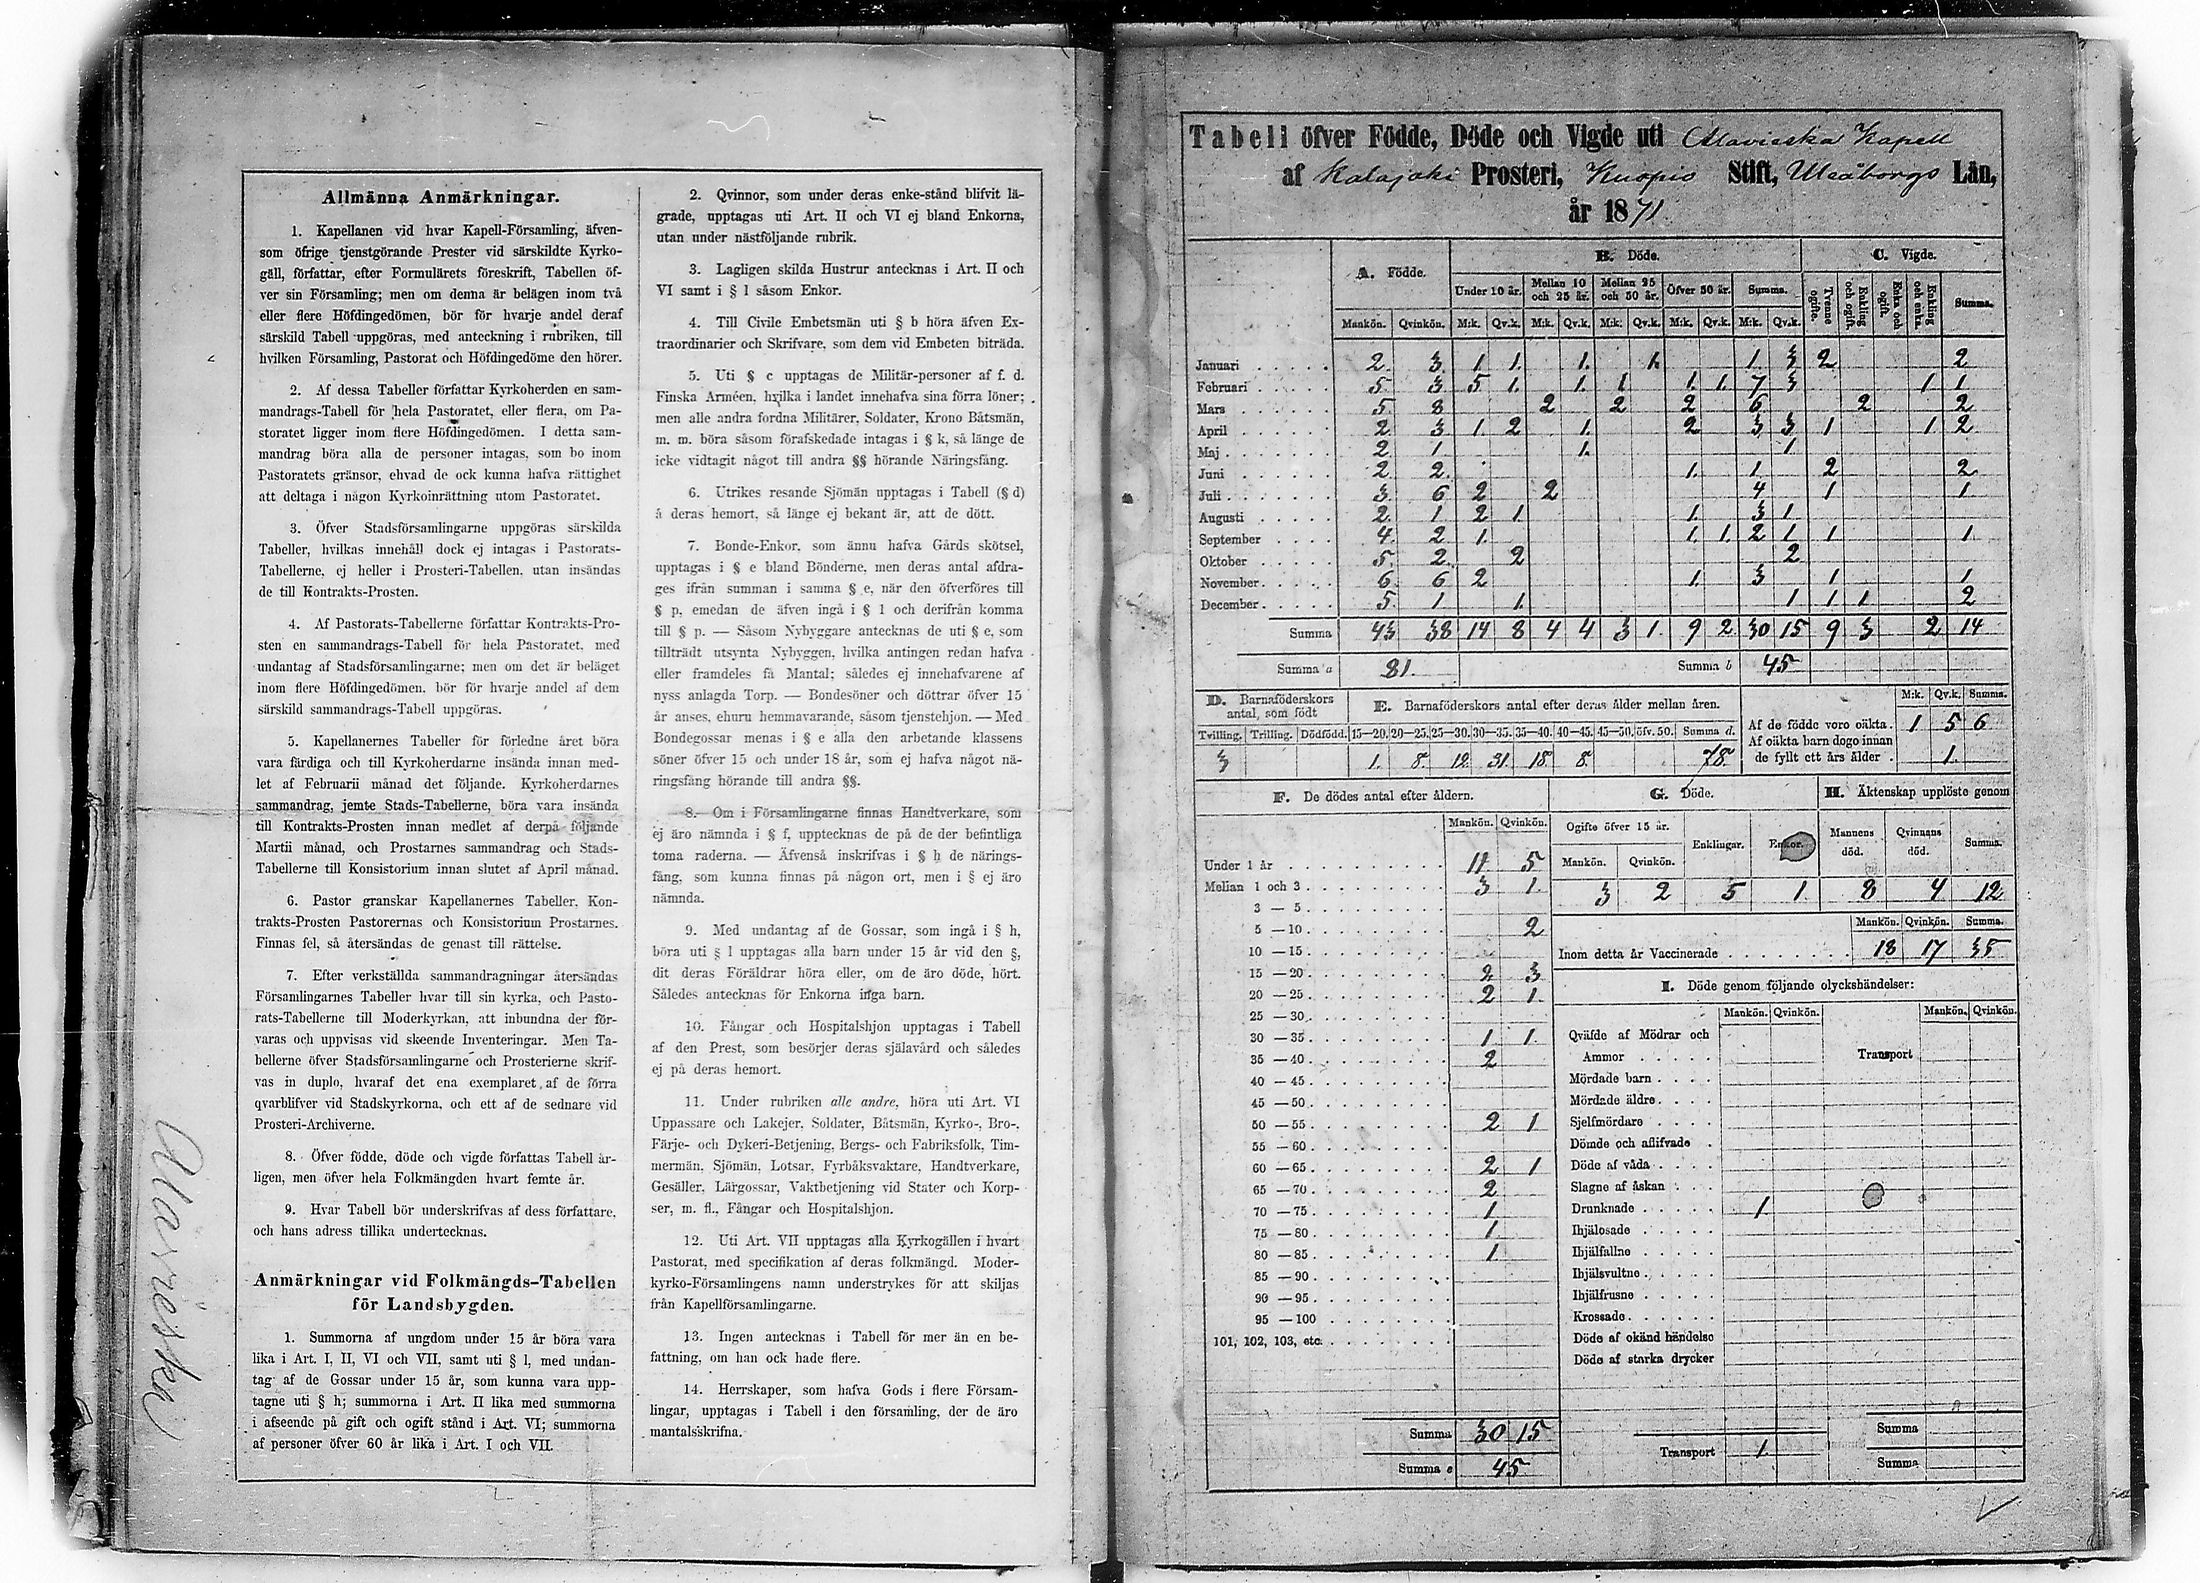 Allmänna Anmärkningar.
1. Kapellanen vid hvar Kapell-Församling, äfven-
som öfrige tjenstgörande Prester vid särskildte Kyrko-
gäll, författar, efter Formulärets föreskrift, Tabellen öf-
ver sin Församling; men om denna är belägen inom två
eller flere Höfdingedömen, bör för hvarje andel deraf
särskild Tabell uppgöras, med anteckning i rubriken, till
hvilken Församling, Pastorat och Höfdingedöme den hörer.
2. Af dessa Tabeller författar Kyrkoherden en sam-
mandrags-Tabell för hela Pastoratet, eller flera, om Pa-
storatet ligger inom flere Höfdingedömen. I detta sam-
mandrag böra alla de personer intagas, som bo inom
Pastoratets gränsor, ehvad de ock kunna hafva rättighet
att deltaga i någon Kyrkoinrättning utom Pastoratet.
3. Öfver Stadsförsamlingarne uppgöras särskilda
Tabeller, hvilkas innehåll dock ej intagas i Pastorats-
Tabellerne, ej heller i Prosteri-Tabellen, utan insändas
de till Kontrakts-Prosten.
4. Af Pastorats-Tabellerne författar Kontrakts-Pro-
sten en sammandrags-Tabell för hela Pastoratet, med
undantag af Stadsförsamlingarne; men om det är beläget
inom flere Höfdingedömen, bör för hvarje andel af dem
särskild sammandrags-Tabell uppgöras.
5. Kapellanernes Tabeller för förledne året böra
vara färdiga och till Kyrkoherdarne insända innan med-
let af Februarii månad det följande. Kyrkoherdarnes
sammandrag, jemte Stads-Tabellerne, böra vara insända
till Kontrakts-Prosten innan medlet af derpå följande
Martii månad, och Prostarnes sammandrag och Stads-
Tabellerne till Konsistorium innan slutet af April månad.
6. Pastor granskar Kapellanernes Tabeller, Kon-
trakts-Prosten Pastorernas och Konsistorium Prostarnes.
Finnas fel, så återsändas de genast till rättelse.
7. Efter verkställda sammandragningar återsändas
Församlingarnes Tabeller hvar till sin kyrka, och Pasto-
rats-Tabellerne till Moderkyrkan, att inbundna der för-
varas och uppvisas vid skeende Inventeringar. Men Ta-
bellerne öfver Stadsförsamlingarne och Prosterierne skrif-
vas in duplo, hvaraf det ena exemplaret af de förra
qvarblifver vid Stadskyrkorna, och ett af de sednare vid
Prosteri-Archiverne.
8. Öfver födde, döde och vigde författas Tabell år-
ligen, men öfver hela Folkmängden hvart femte år.
9. Hvar Tabell bör underskrifvas af dess författare,
och hans adress tillika undertecknas.
Anmärkningar vid Folkmängds-Tabellen
för Landsbygden.
1. Summorna af ungdom under 15 år böra vara
lika i Art. I, II, VI och VII, samt uti § l, med undan-
tag af de Gossar under 15 år, som kunna vara upp-
tagne uti § h; summorna i Art. II lika med summorna
i afseende på gift och ogift stånd i Art. VI; summorna
af personer öfver 60 år lika i Art. I och VII.
2. Qvinnor, som under deras enke-stånd blifvit lä-
grade, upptagas uti Art. II och VI ej bland Enkorna,
utan under nästföljande rubrik.
3. Lagligen skilda Hustrur antecknas i Art. II och
VI samt i § l såsom Enkor.
4. Till Civile Embetsmän uti § b höra äfven Ex-
traordinarier och Skrifvare, som dem vid Embeten biträda.
5. Uti § c upptagas de Militär-personer af f. d.
Finska Arméen, hvilka i landet innehafva sina förra löner;
men alle andra fordna Militärer, Soldater, Krono Båtsmän,
m. m. böra såsom förafskedade intagas i § k, så länge de
icke vidtagit något till andra §§ hörande Näringsfång.
6. Utrikes resande Sjömän upptagas i Tabell (§ d)
å deras hemort, så länge ej bekant är, att de dött.
7. Bonde-Enkor, som ännu hafva Gårds skötsel,
upptagas i § e bland Bönderne, men deras antal afdra-
ges ifrån summan i samma § e, när den öfverföres till
§ p, emedan de äfven ingå i § l och derifrån komma
till § p. — Såsom Nybyggare antecknas de uti § e, som
tillträdt utsynta Nybyggen, hvilka antingen redan hafva
eller framdeles få Mantal; således ej innehafvarene af
nyss anlagda Torp. — Bondesöner och döttrar öfver 15
år anses, ehuru hemmavarande, såsom tjenstehjon. — Med
Bondegossar menas i § e alla den arbetande klassens
söner öfver 15 och under 18 år, som ej hafva något nä-
ringsfång hörande till andra §§.
8. Om i Församlingarne finnas Handtverkare, som
ej äro nämnda i § f, upptecknas de på de der befintliga
toma raderna. — Äfvenså inskrifvas i § h de närings-
fång, som kunna finnas på någon ort, men i § ej äro
nämnda.
9. Med undantag af de Gossar, som ingå i § h,
böra uti § l upptagas alla barn under 15 år vid den §,
dit deras Föräldrar höra eller, om de äro döde, hört.
Således antecknas för Enkorna inga barn.
10. Fångar och Hospitalshjon upptagas i Tabell
af den Prest, som besörjer deras själavård och således
ej på deras hemort.
11. Under rubriken alle andre, höra uti Art. VI
Uppassare och Lakejer, Soldater, Båtsmän, Kyrko-, Bro-,
Färje- och Dykeri-Betjening, Bergs- och Fabriksfolk, Tim-
mermän, Sjömän, Lotsar, Fyrbåksvaktare, Handtverkare,
Gesäller, Lärgossar, Vaktbetjening vid Stater och Korp-
ser, m. fl., Fångar och Hospitalshjon.
12. Uti Art. VII upptagas alla Kyrkogällen i hvart
Pastorat, med specifikation af deras folkmängd. Moder-
kyrko-Församlingens namn understrykes för att skiljas
från Kapellförsamlingarne.
13. Ingen antecknas i Tabell för mer än en be-
fattning, om han ock hade flere.
14. Herrskaper, som hafva Gods i flere Försam-
lingar, upptagas i Tabell i den församling, der de äro
mantalsskrifna.
Alavieska
Tabell öfver Födde, Döde och Vigde uti Alavieska Kapell
af Kalajoki Prosteri, Kuopio Stift, Uleåborgs Län,
år 1871
A. Födde. B. Döde. C. Vigde.
Under 10 år. Mellan 10 och 25 år. Mellan 25 och 50 år. Öfver 50 år. Summa. Tvenne ogifte. Enkling och ogift. Enka och ogift. Enkling och enka. Summa.
Mankön. Qvinkön. M:k. Qv.k. M:k. Qv.k. M:k. Qv.k. M:k. Qv.k. M:k. Qv.k.
Januari 2 3 1 1 1 1 1 3 2 2
Februari 5 3 5 1 1 1 1 1 7 3 1 1
Mars 5 8 2 2 2 6 2 2
April 2 3 1 2 1 2 3 3 1 1 2
Maj 2 1 1 1
Juni 2 2 1 1 2 2
Juli 3 6 2 2 4 1 1
Augusti 2 1 2 1 1 3 1
September 4 2 1 1 1 2 1 1 1
Oktober 5 2 2 2
November 6 6 2 1 3 1 1
December 5 1 1 1 1 1 2
Summa 43 38 14 8 4 4 3 1 9 2 30 15 9 3 2 14
Summa a 81 Summa b 45
D. Barnaföderskors antal, som födt
Tvilling. Trilling. Dödfödd.
3
E. Barnaföderskors antal efter deras ålder mellan åren.
15—20. 20—25. 25—30. 30—35. 35—40. 40—45. 45—50. öfv. 50. Summa d.
1 8 12 31 18 8 78
M:k. Qv.k. Summa.
Af de födde voro oäkta 1 5 6
Af oäkta barn dogo innan
de fyllt ett års ålder 1
F. De dödes antal efter åldern.
Mankön. Qvinkön.
Under 1 år 11 5
Mellan 1 och 3 3 1
3 — 5
5 — 10 2
10 — 15
15 — 20 2 3
20 — 25 2 1
25 — 30
30 — 35 1 1
35 — 40 2
40 — 45
45 — 50
50 — 55 2 1
55 — 60
60 — 65 2 1
65 — 70 2
70 — 75 1
75 — 80 1
80 — 85 1
85 — 90
90 — 95
95 — 100
101, 102, 103, etc.
Summa 30 15
Summa e 45
G. Döde.
Ogifte öfver 15 år. Enklingar. Enkor.
Mankön. Qvinkön.
3 2 5 1
H. Äktenskap upplöste genom
Mannens död. Qvinnans död. Summa.
8 4 12
Mankön. Qvinkön. Summa.
Inom detta år Vaccinerade 18 17 35
I. Döde genom följande olyckshändelser:
Mankön. Qvinkön. Mankön. Qvinkön.
Qväfde af Mödrar och
Ammor Transport
Mördade barn
Mördade äldre
Sjelfmördare
Dömde och aflifvade
Döde af våda
Slagne af åskan
Drunknade 1
Ihjälosade
Ihjälfallne
Ihjälsvultne
Ihjälfrusne
Krossade
Döde af okänd händelse
Döde af starka drycker
Summa
Transport 1
Summa